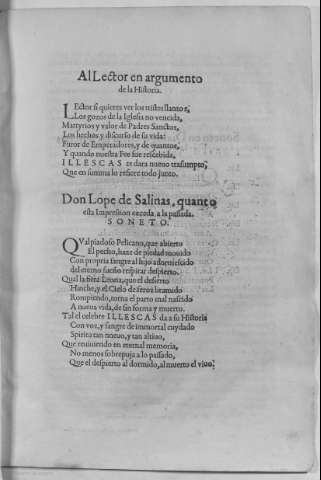 Al Lector en argumento
de la Historia.
LEctor si quieres ver los tristes llantos,
Los gozos de la Iglesia no vencida,
Martyrios y valor de Padres Sanctos,
Los hechos y discurso de su vida:
Furor de Emperadores, y de quantos,
Y quando nuestra Fee fue rescebida,
ILLESCAS te dara nuevo trasumpto,
Que en summa lo refiere todo junto.
Don Lope de Salinas, quanto
esta Impression exceda, a la passada.
SONETO.
QVal piadoso Pelicano, que abierto
El pecho, haze de piedad movido
Con propria sangre al hijo adormescido
del eterno sueño respirar despierto.
Qual la Leona, que el desierto
Hinche, y el Cielo de feroz bramido
Rompiendo, torna el parto mal nascido
A nueva vida, de sin forma y muerto.
Tal el celebre ILLESCAS da a su Historia
Con voz, y sangre de immortal cuydado
Spiritu tan nuevo, y tan altivo,
Que reuiuiendo en eternal memoria,
No menos sobrepuja a lo passado,
Que el despierto al dormido, al muerto el viuo.